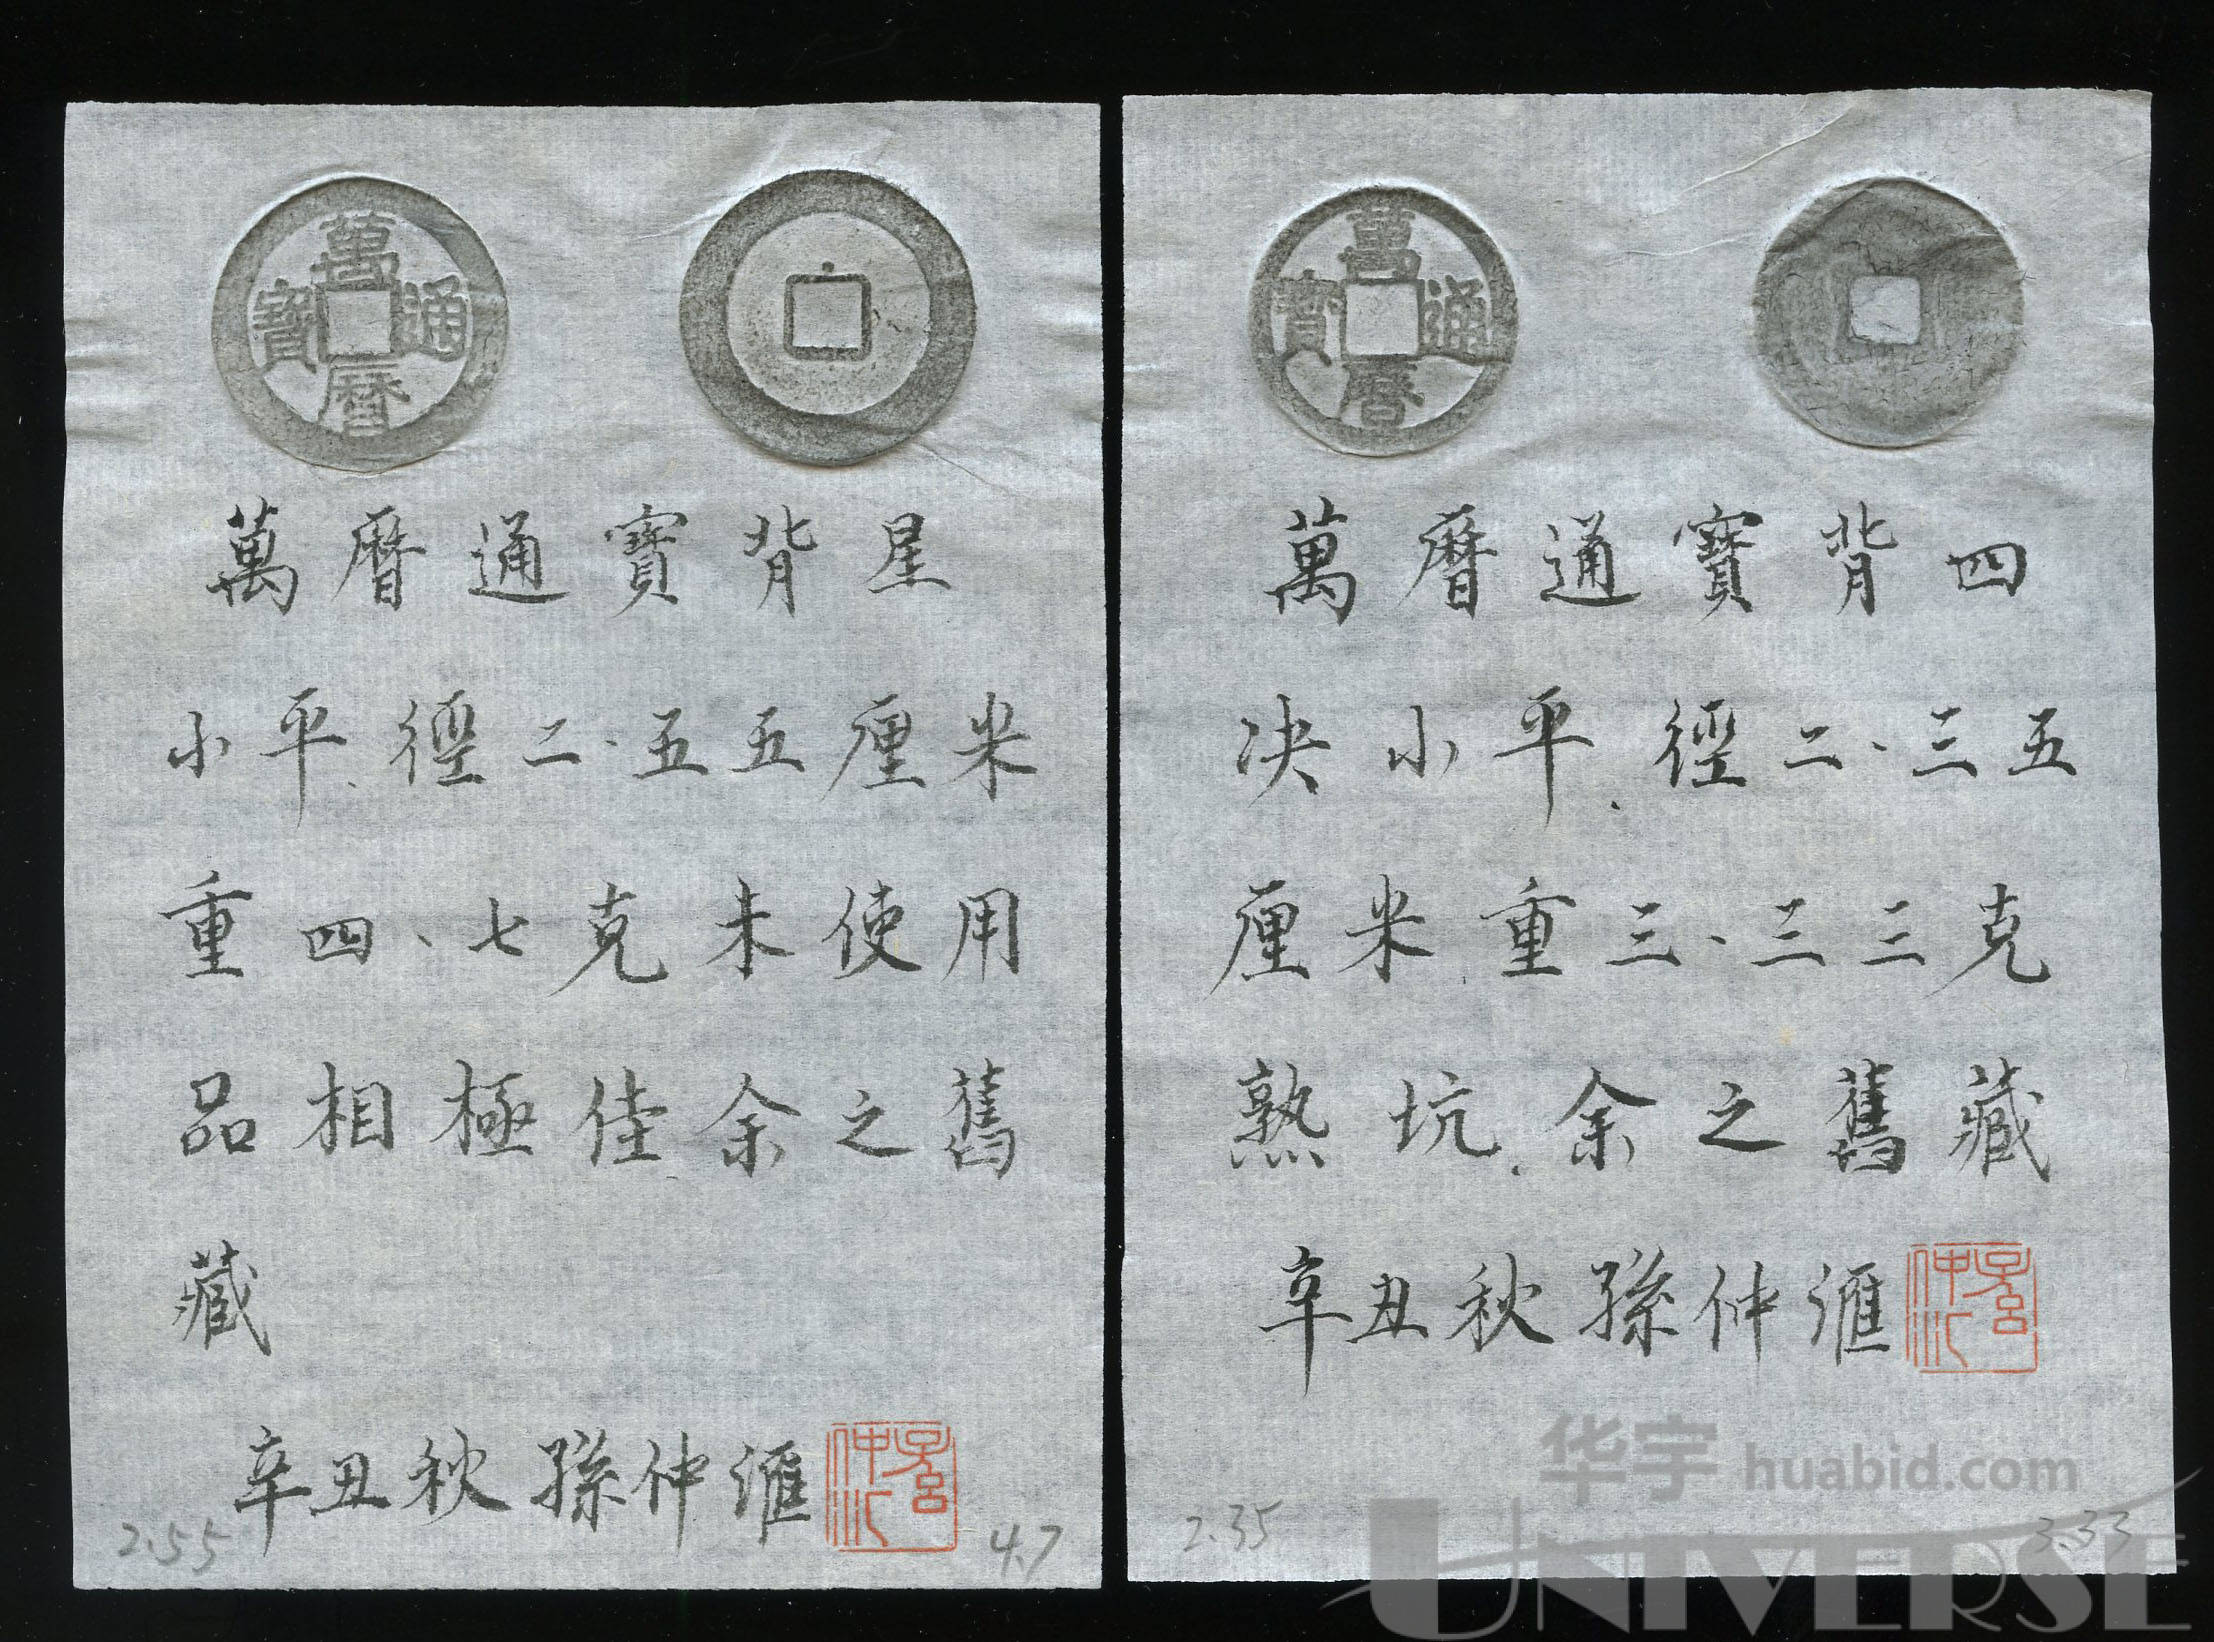 萬
通
寶
曆
萬曆通寶背星
小平、徑二、五五厘米
重四、七克未使用
品相極佳、余之舊
藏
辛丑秋孫仲匯
2.55
4.7
萬
通
寶
曆
萬曆通寶背四
决小平、徑二、三五
厘米、重三、三三克
熟坑、余之舊藏
辛丑秋孫仲滙
2.35
3.33
华宇 huabid.com
UNIVERSE